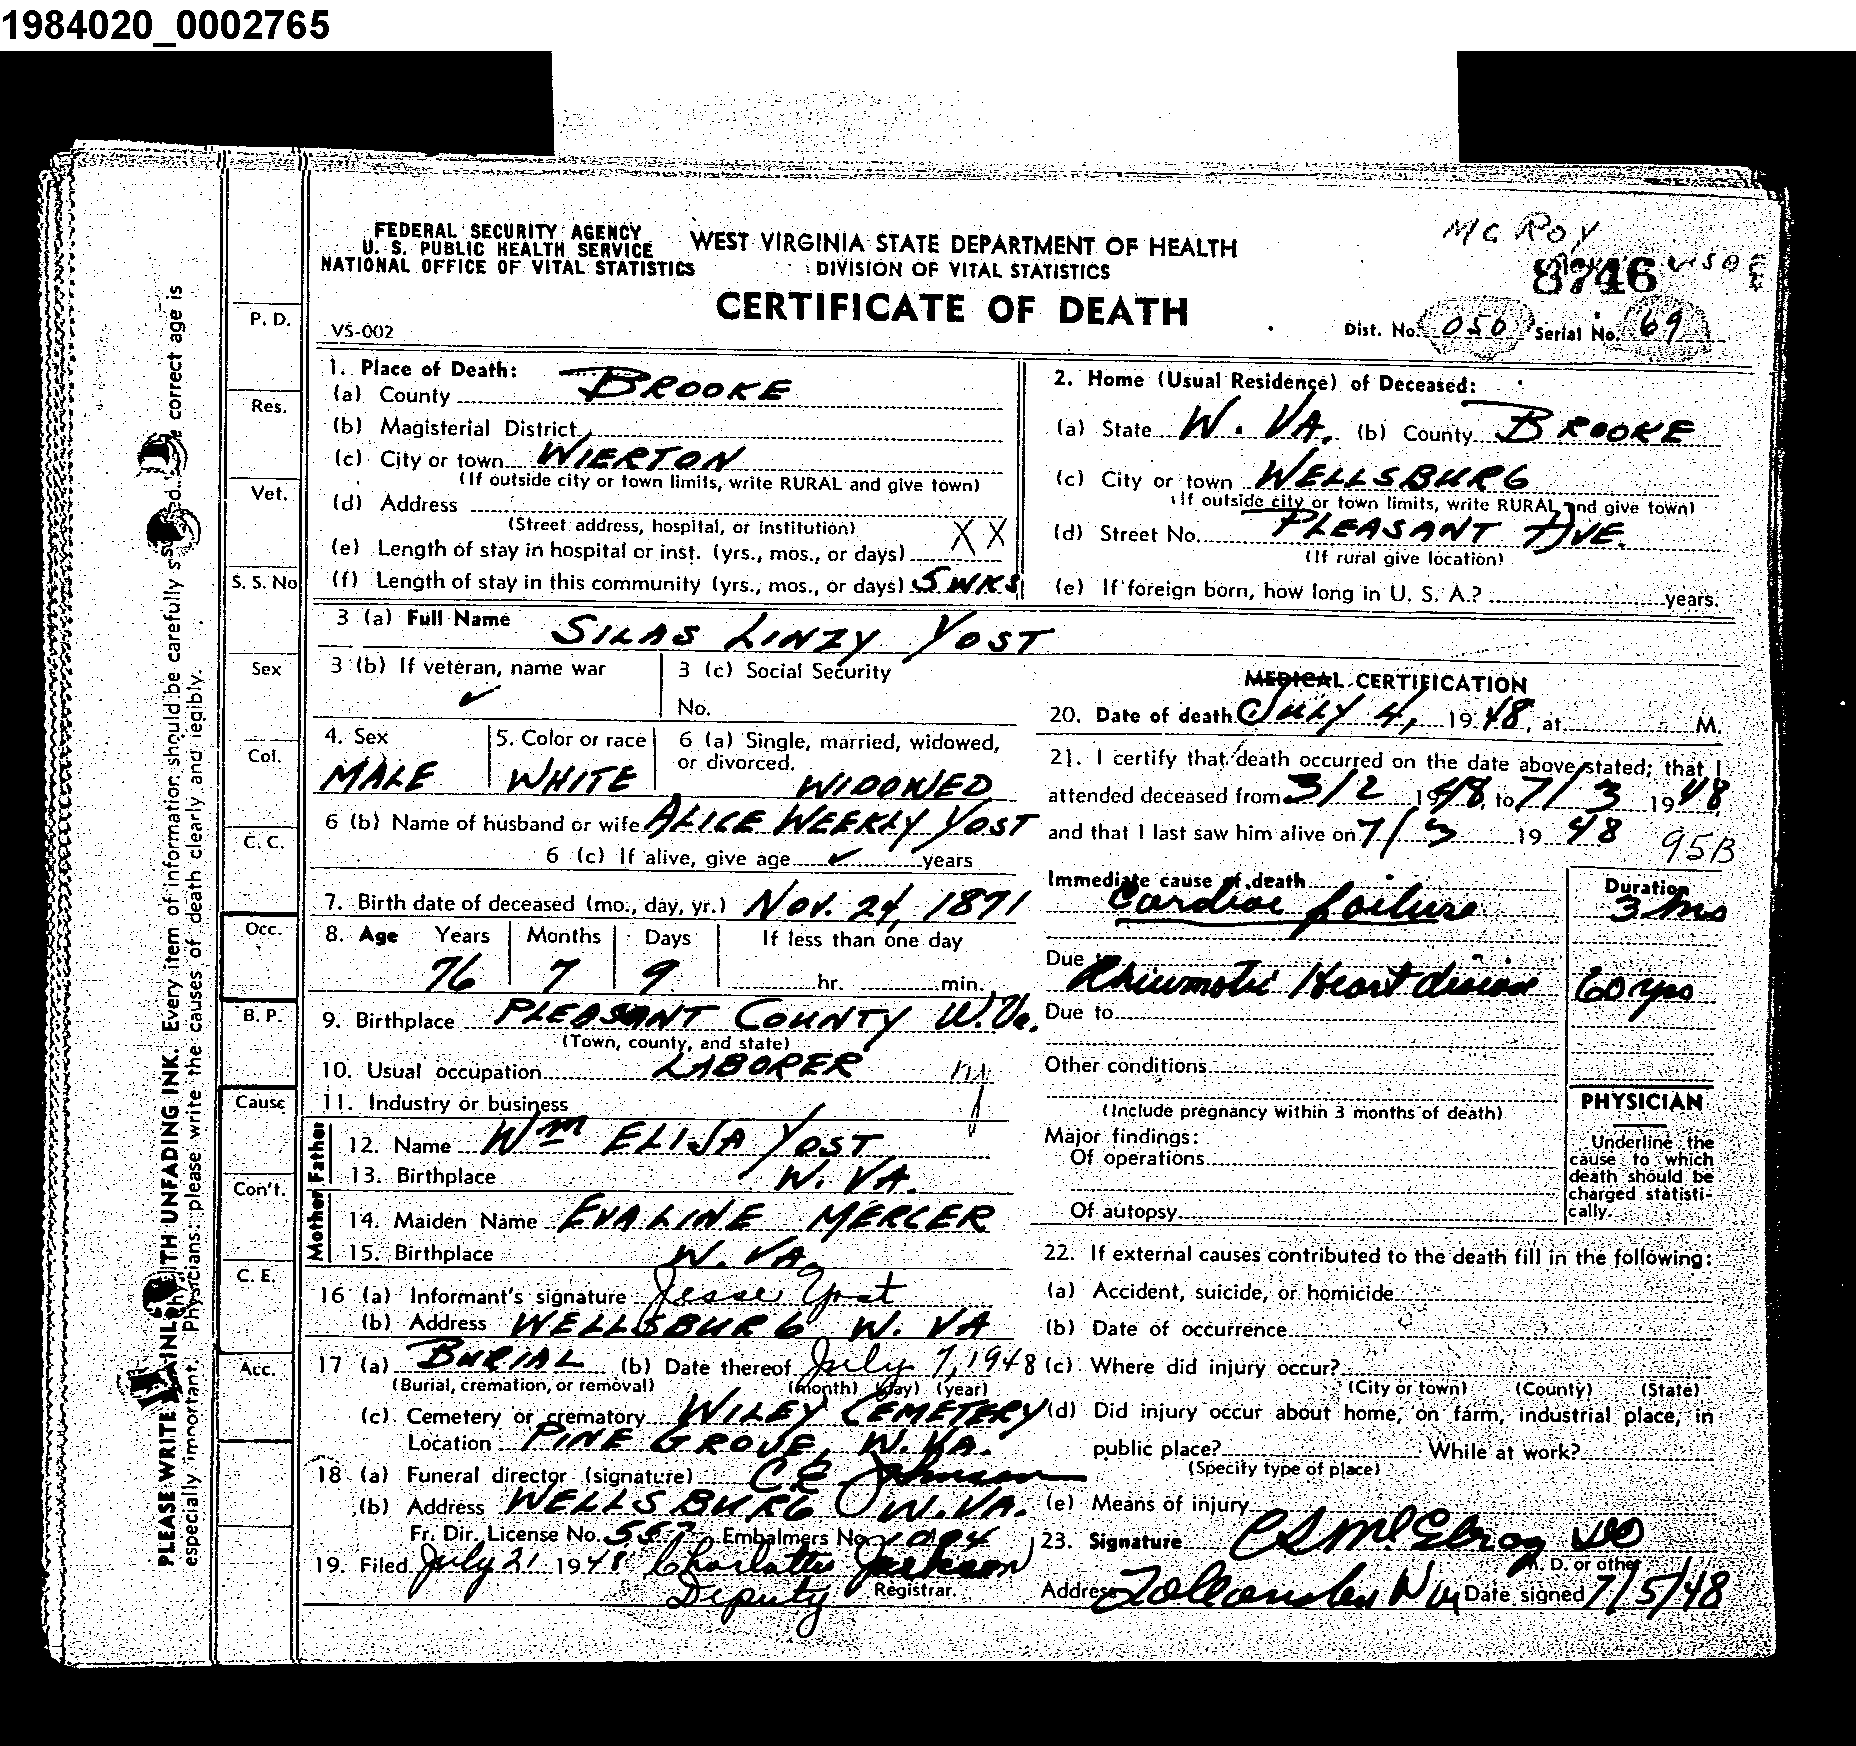 1984020_0002765
FEDERAL SECURITY AGENCY
U. S. PUBLIC HEALTH SERVICE
NATIONAL OFFICE OF VITAL STATISTICS
WEST VIRGINIA STATE DEPARTMENT OF HEALTH
DIVISION OF VITAL STATISTICS
CERTIFICATE OF DEATH
VS-002
Mc Roy
8746
Dist. No. 050 Serial No. 69
P. D.
Res.
Vet.
S. S. No
Sex
Col.
C. C.
Occ.
B. P.
Cause
Con't.
C. E.
Acc.
1. Place of Death:
(a) County BROOKE
(b) Magisterial District
(c) City or town WIERTON
(If outside city or town limits, write RURAL and give town)
(d) Address
(Street address, hospital, or institution)
(e) Length of stay in hospital or inst. (yrs., mos., or days) XX
(f) Length of stay in this community (yrs., mos., or days) 5 WKS
2. Home (Usual Residence) of Deceased:
(a) State W. VA. (b) County BROOKE
(c) City or town WELLSBURG
(If outside city or town limits, write RURAL and give town)
(d) Street No. PLEASANT AVE.
(If rural give location)
(e) If foreign born, how long in U. S. A.? years.
3 (a) Full Name SILAS LINZY YOST
3 (b) If veteran, name war ✓
3 (c) Social Security
No.
4. Sex MALE
5. Color or race WHITE
6 (a) Single, married, widowed,
or divorced. WIDOWED
6 (b) Name of husband or wife ALICE WEEKLY YOST
6 (c) If alive, give age ✓ years
7. Birth date of deceased (mo., day, yr.) NOV. 24, 1871
8. Age Years Months Days If less than one day
76 7 9 hr. min.
9. Birthplace PLEASANT COUNTY W. Va.
(Town, county, and state)
10. Usual occupation LABORER
11. Industry or business
Father
12. Name Wm ELISA YOST
13. Birthplace W. VA.
Mother
14. Maiden Name EVALINE MERCER
15. Birthplace W. VA.
16 (a) Informant's signature Jesse Yost
(b) Address WELLSBURG W. VA
17 (a) BURIAL (b) Date thereof July 7, 1948
(Burial, cremation, or removal) (month) (day) (year)
(c) Cemetery or crematory WILEY CEMETERY
Location PINE GROVE, W. VA.
18 (a) Funeral director (signature) C E Johnson
(b) Address WELLSBURG W. VA.
Fr. Dir. License No. 557 Embalmers No. 1094
19. Filed July 21 1948 Charlotte Jackson
Deputy Registrar.
MEDICAL CERTIFICATION
20. Date of death JULY 4, 1948, at M.
21. I certify that death occurred on the date above stated; that I
attended deceased from 3/2 1948 to 7/3 1948
and that I last saw him alive on 7/3 19 48
95B
Immediate cause of death Duration
Cardiac failure 3 hrs
Due to
Rheumatic Heart disease 60 yrs
Due to
Other conditions
(Include pregnancy within 3 months of death)
Major findings:
Of operations
Of autopsy
PHYSICIAN
Underline the
cause to which
death should be
charged statisti-
cally.
22. If external causes contributed to the death fill in the following:
(a) Accident, suicide, or homicide
(b) Date of occurrence
(c) Where did injury occur?
(City or town) (County) (State)
(d) Did injury occur about home, on farm, industrial place, in
public place? While at work?
(Specify type of place)
(e) Means of injury
23. Signature C S McElroy DO
M. D. or other
Address Follansbee W Va Date signed 7/5/48
PLEASE WRITE PLAINLY WITH UNFADING INK. Every item of information should be carefully correct age is
especially important. Physicians: please write the causes of death clearly and legibly.